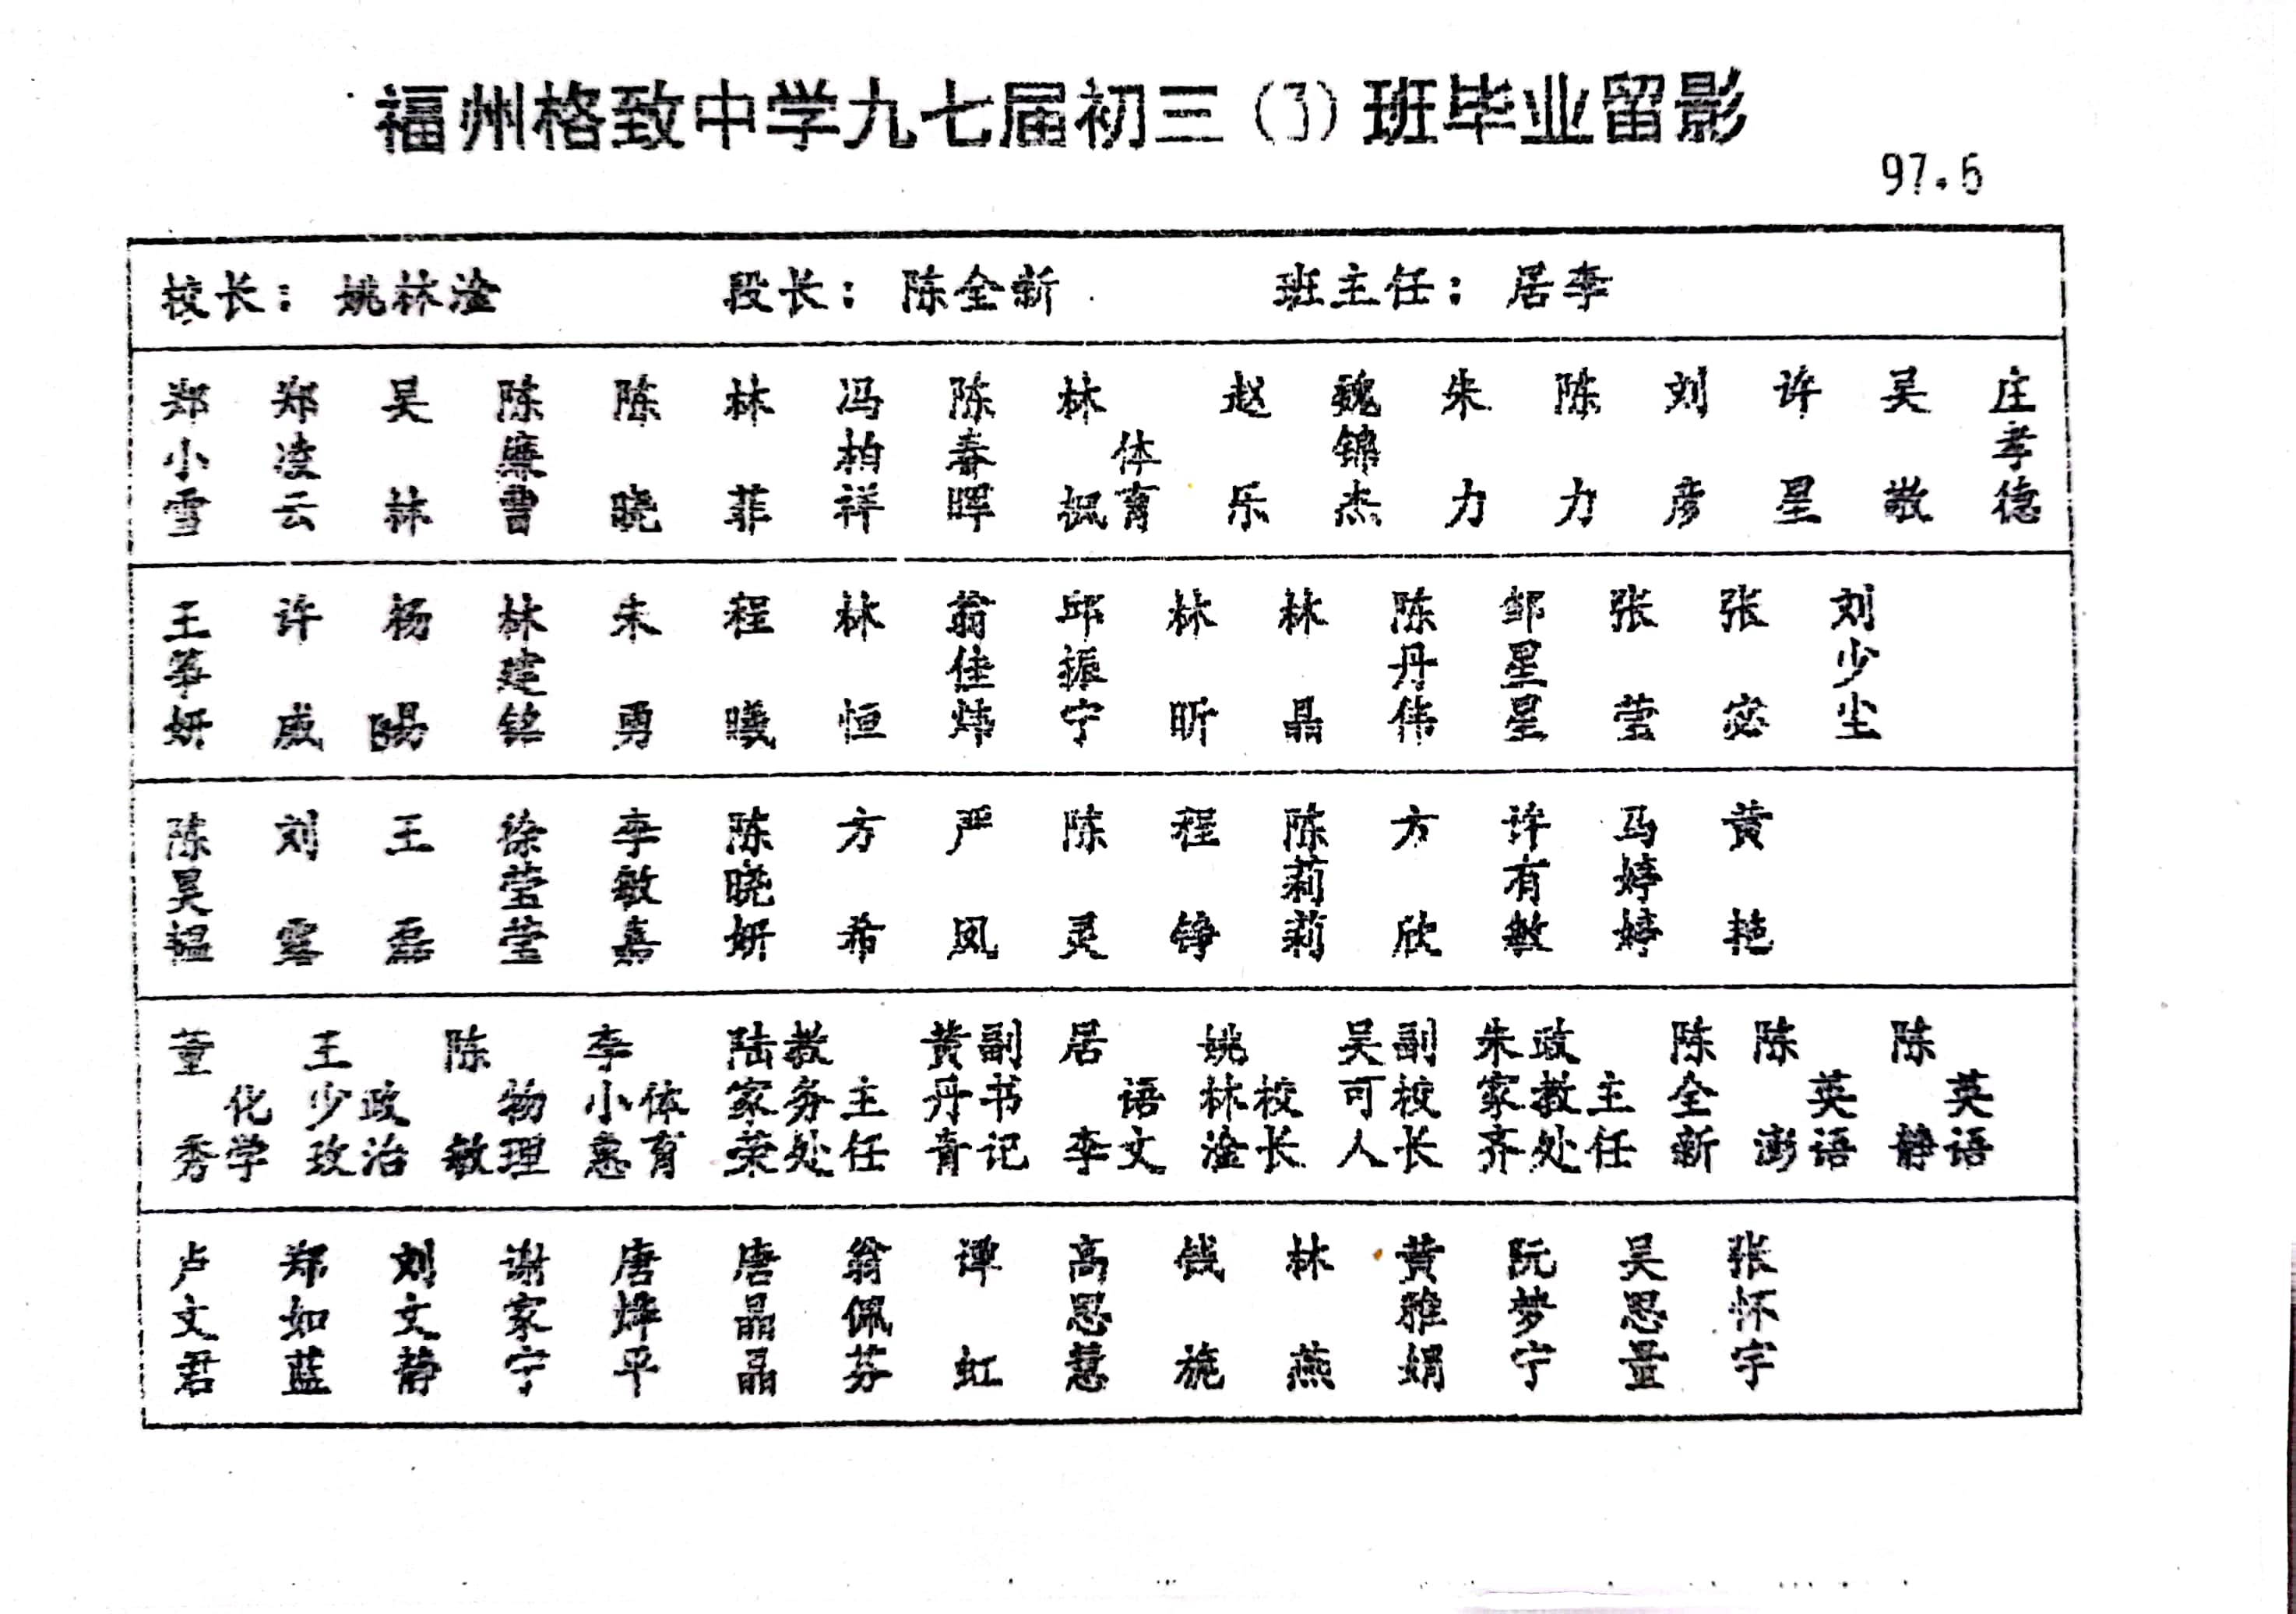 福州格致中学九七届初三(3)班毕业留影
97.6
校长：姚林淦 段长：陈全新 班主任：居李
郑小雪 郑凌云 吴林 陈廉曹 陈晓 林菲 冯柏祥 陈春晖 林枫 体育 赵乐 魏锦杰 朱力 陈力 刘彦 许星 吴敬 庄孝德
王筝妍 许威 杨阳 林建铭 朱勇 程曦 林恒 翁佳炜 邱振宁 林昕 林晶 陈丹伟 邹星星 张莹 张宓 刘少尘
陈昊韫 刘露 王磊 徐莹莹 李敏嘉 陈晓妍 方希 严凤 陈灵 程铮 陈莉莉 方欣 许有敏 马婷婷 黄艳
董秀 化学 王少玫 政治 陈敏 物理 李小惠 体育 陆家荣 教务处主任 黄丹青 副书记 居李 语文 姚林淦 校长 吴可人 副校长 朱家齐 政教处主任 陈全新 陈澎 英语 陈静 英语
卢文君 郑如蓝 刘文静 谢家宁 唐烨平 唐晶晶 翁佩芬 谭虹 高恩慧 钱施 林燕 黄雅娟 阮梦宁 吴思量 张怀宇